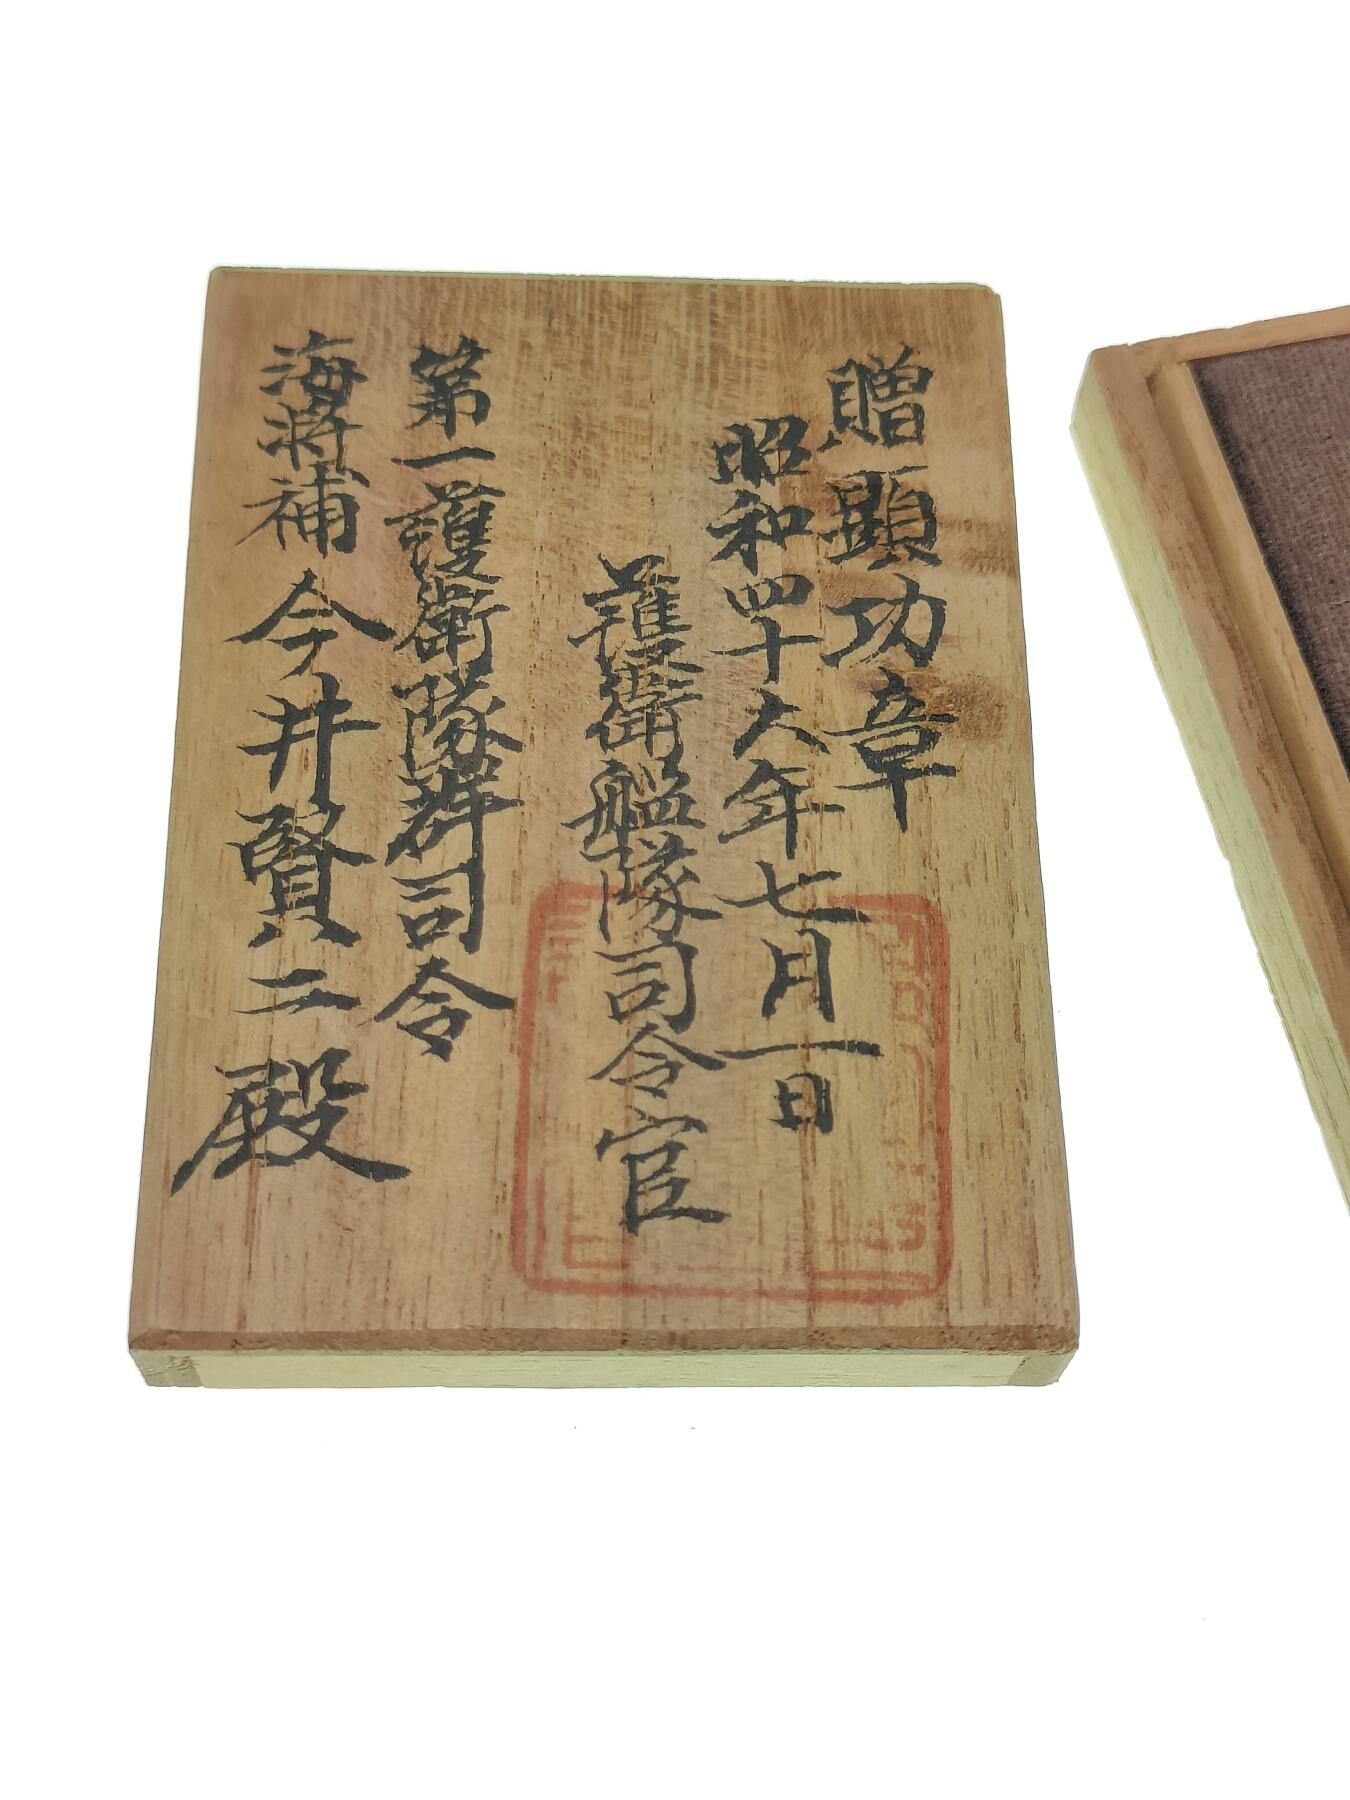 贈顕功章
昭和四十六年七月一日
護衛艦隊司令官
第一護衛隊群司令
海将補 今井賢二殿